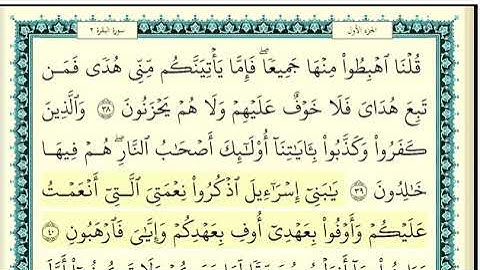 سورة البقرة ٢
الجزء الأول
قُلْنَا ٱهْبِطُوا۟ مِنْهَا جَمِيعًا ۖ فَإِمَّا يَأْتِيَنَّكُم مِّنِّى هُدًى فَمَن
تَبِعَ هُدَاىَ فَلَا خَوْفٌ عَلَيْهِمْ وَلَا هُمْ يَحْزَنُونَ ٣٨ وَٱلَّذِينَ
كَفَرُوا۟ وَكَذَّبُوا۟ بِـَٔايَـٰتِنَآ أُو۟لَـٰٓئِكَ أَصْحَـٰبُ ٱلنَّارِ ۖ هُمْ فِيهَا
خَـٰلِدُونَ ٣٩ يَـٰبَنِىٓ إِسْرَٰٓءِيلَ ٱذْكُرُوا۟ نِعْمَتِىَ ٱلَّتِىٓ أَنْعَمْتُ
عَلَيْكُمْ وَأَوْفُوا۟ بِعَهْدِىٓ أُوفِ بِعَهْدِكُمْ وَإِيَّـٰىَ فَٱرْهَبُونِ ٤٠